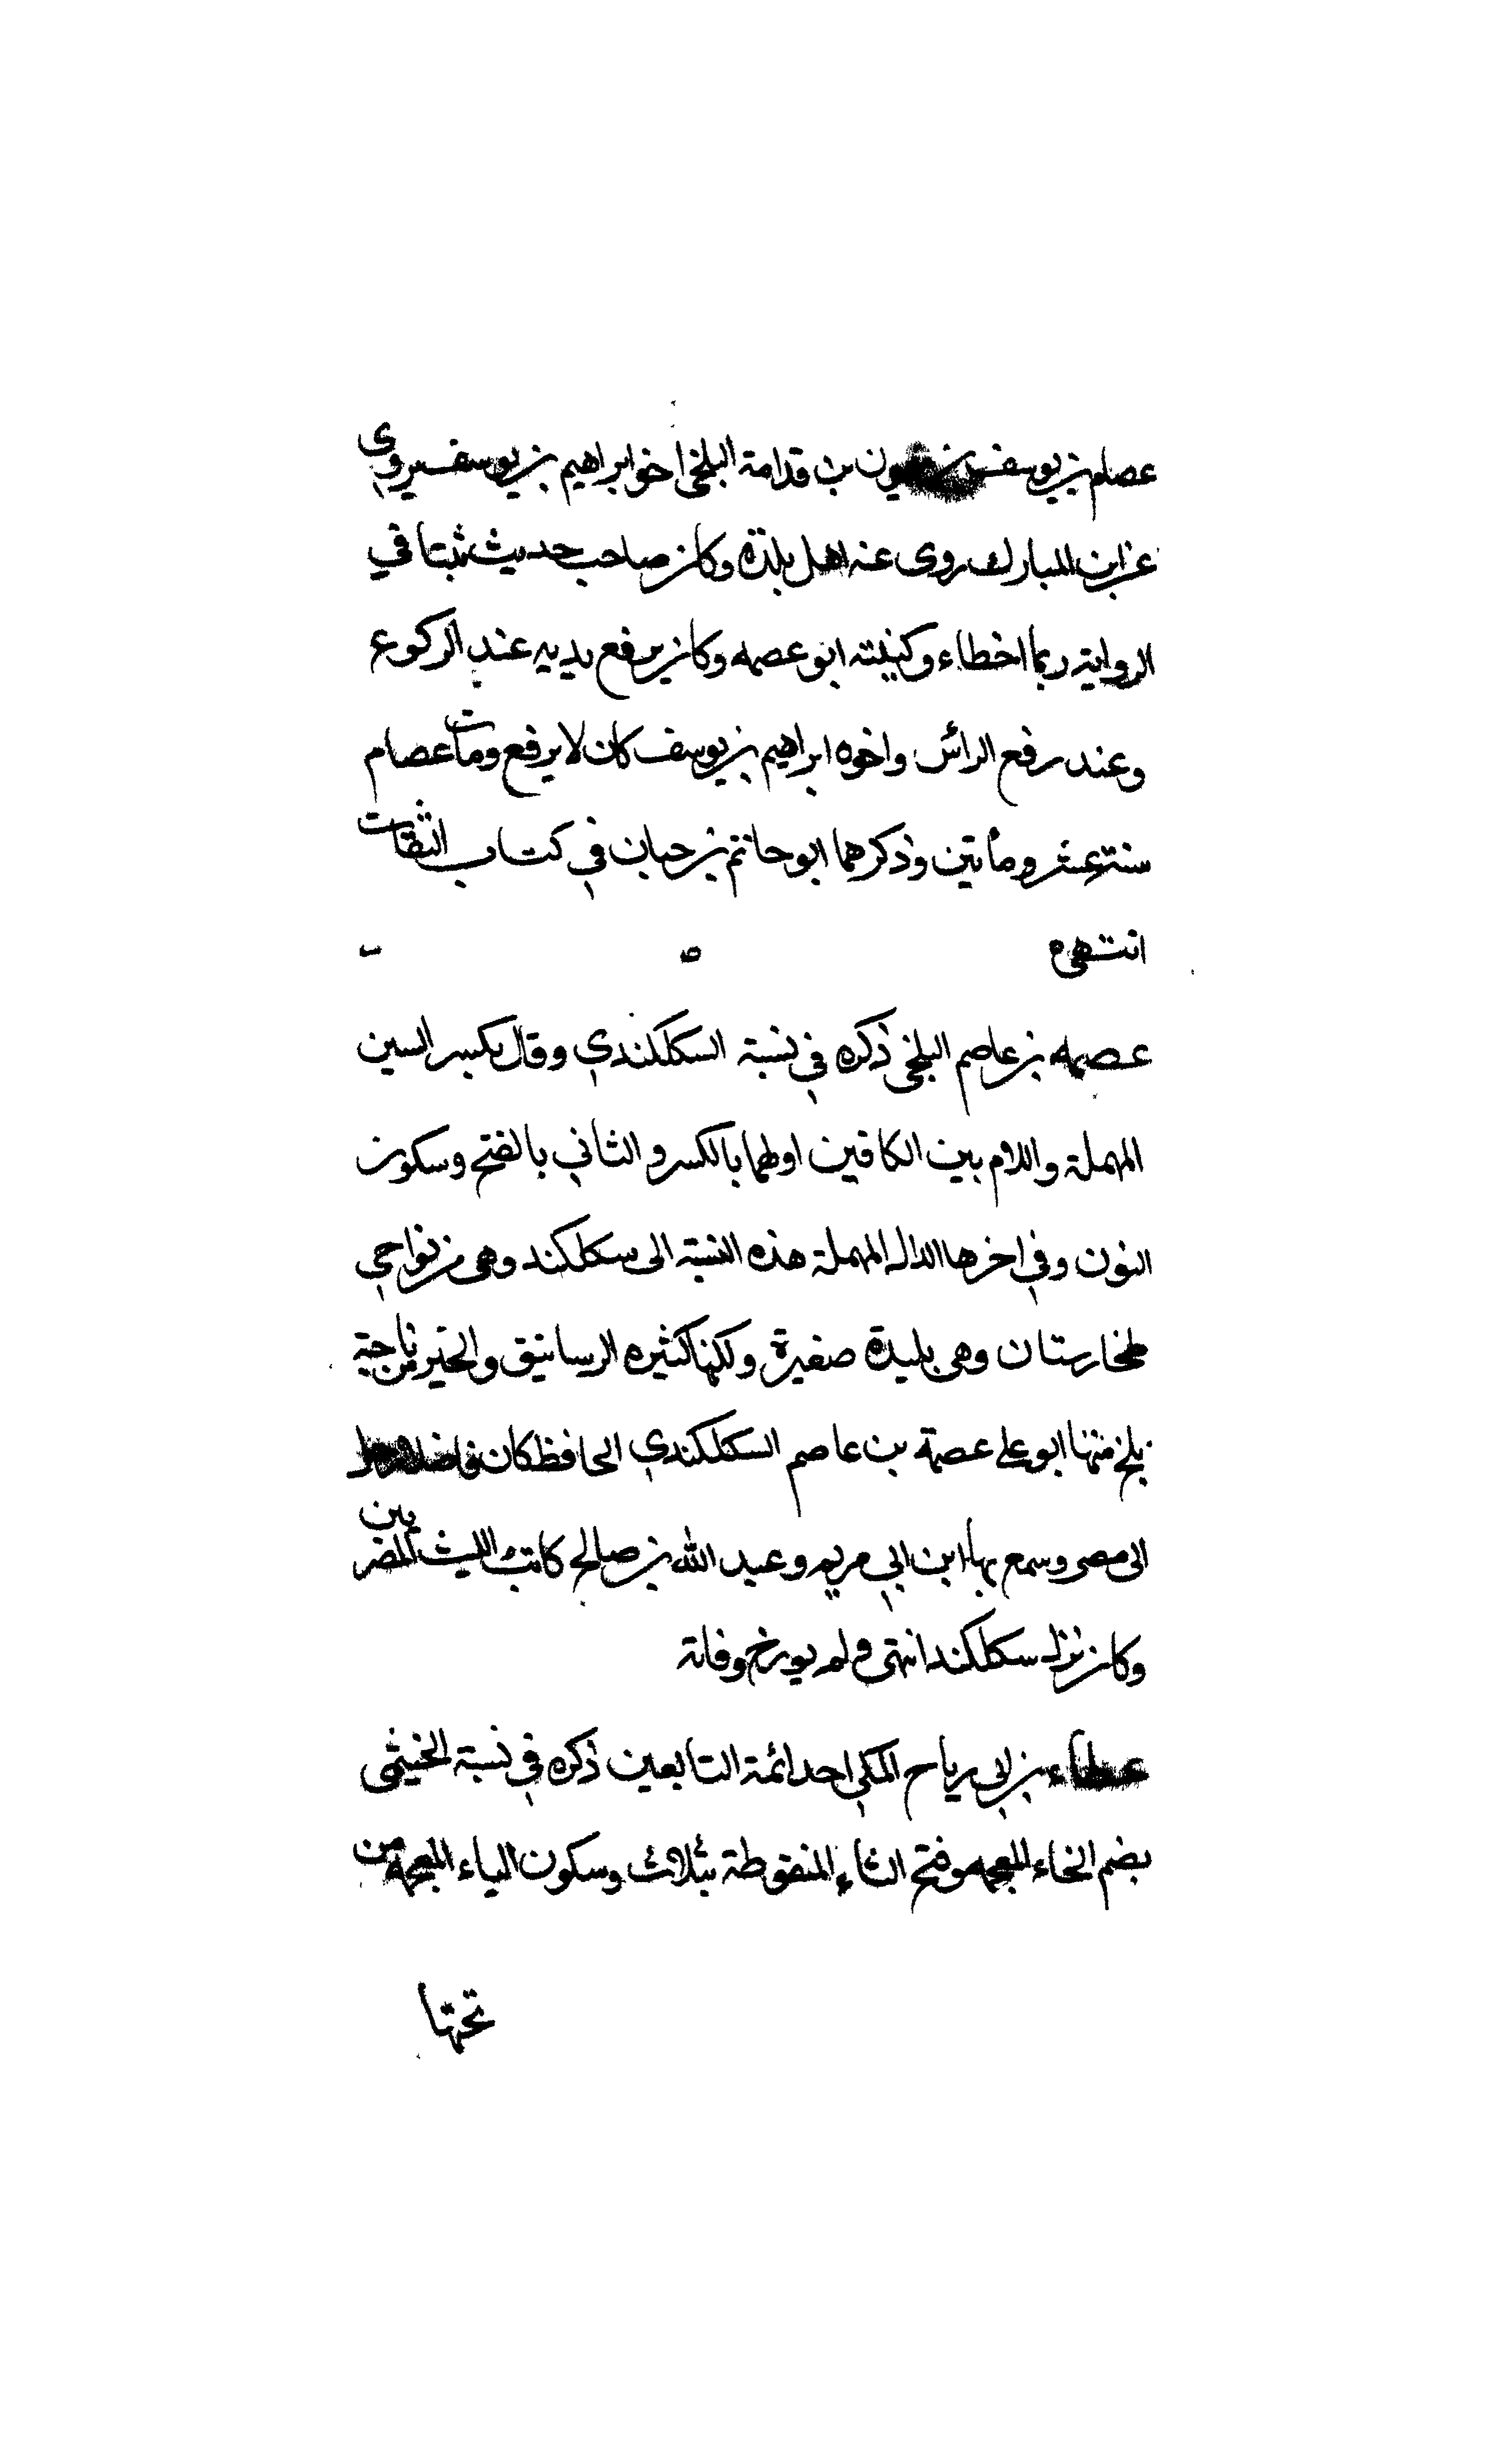 عصام بن يوسف بن ميمون بن قدامة البلخي اخو ابراهيم بن يوسف يروي
عن ابن المبارك روى عنه اهل بلده وكان صاحب حديث ثبتا في
الرواية ربما اخطاء وكنيته ابو عصمه وكان يرفع يديه عند الركوع
وعند رفع الرأس واخوه ابراهيم بن يوسف كان لا يرفع ومات عصام
سنة عشر ومأتين وذكرهما ابو حاتم بن حبان في كتاب الثقات
انتهى
عصمه بن عاصم البلخي ذكره في نسبة السكلكندي وقال بكسر السين
المهملة واللام بين الكافين اولهما بالكسر والثاني بالفتح وسكون
النون وفي اخرها الدال المهملة هذه النسبة الى سكلكند وهي من نواحي
طخارستان وهي بليدة صغيرة ولكنها كثيره الرساتيق والخير من ناحية
بلخ منها ابو علي عصمة بن عاصم السكلكندي الحافظ كان فاضلا رحل
الى مصر وسمع بها ابن ابي مريم وعبد الله بن صالح كاتب الليث المصريين
وكان نزل سكلكند انتهى ولم يورخ وفاته
عطاء بن ابي رباح المكي احد ائمة التابعين ذكره في نسبة الخثيمي
بضم الخاء المعجمه وفتح الثاء المنقوطة بثلاث وسكون الياء المعجمة من
تحتها